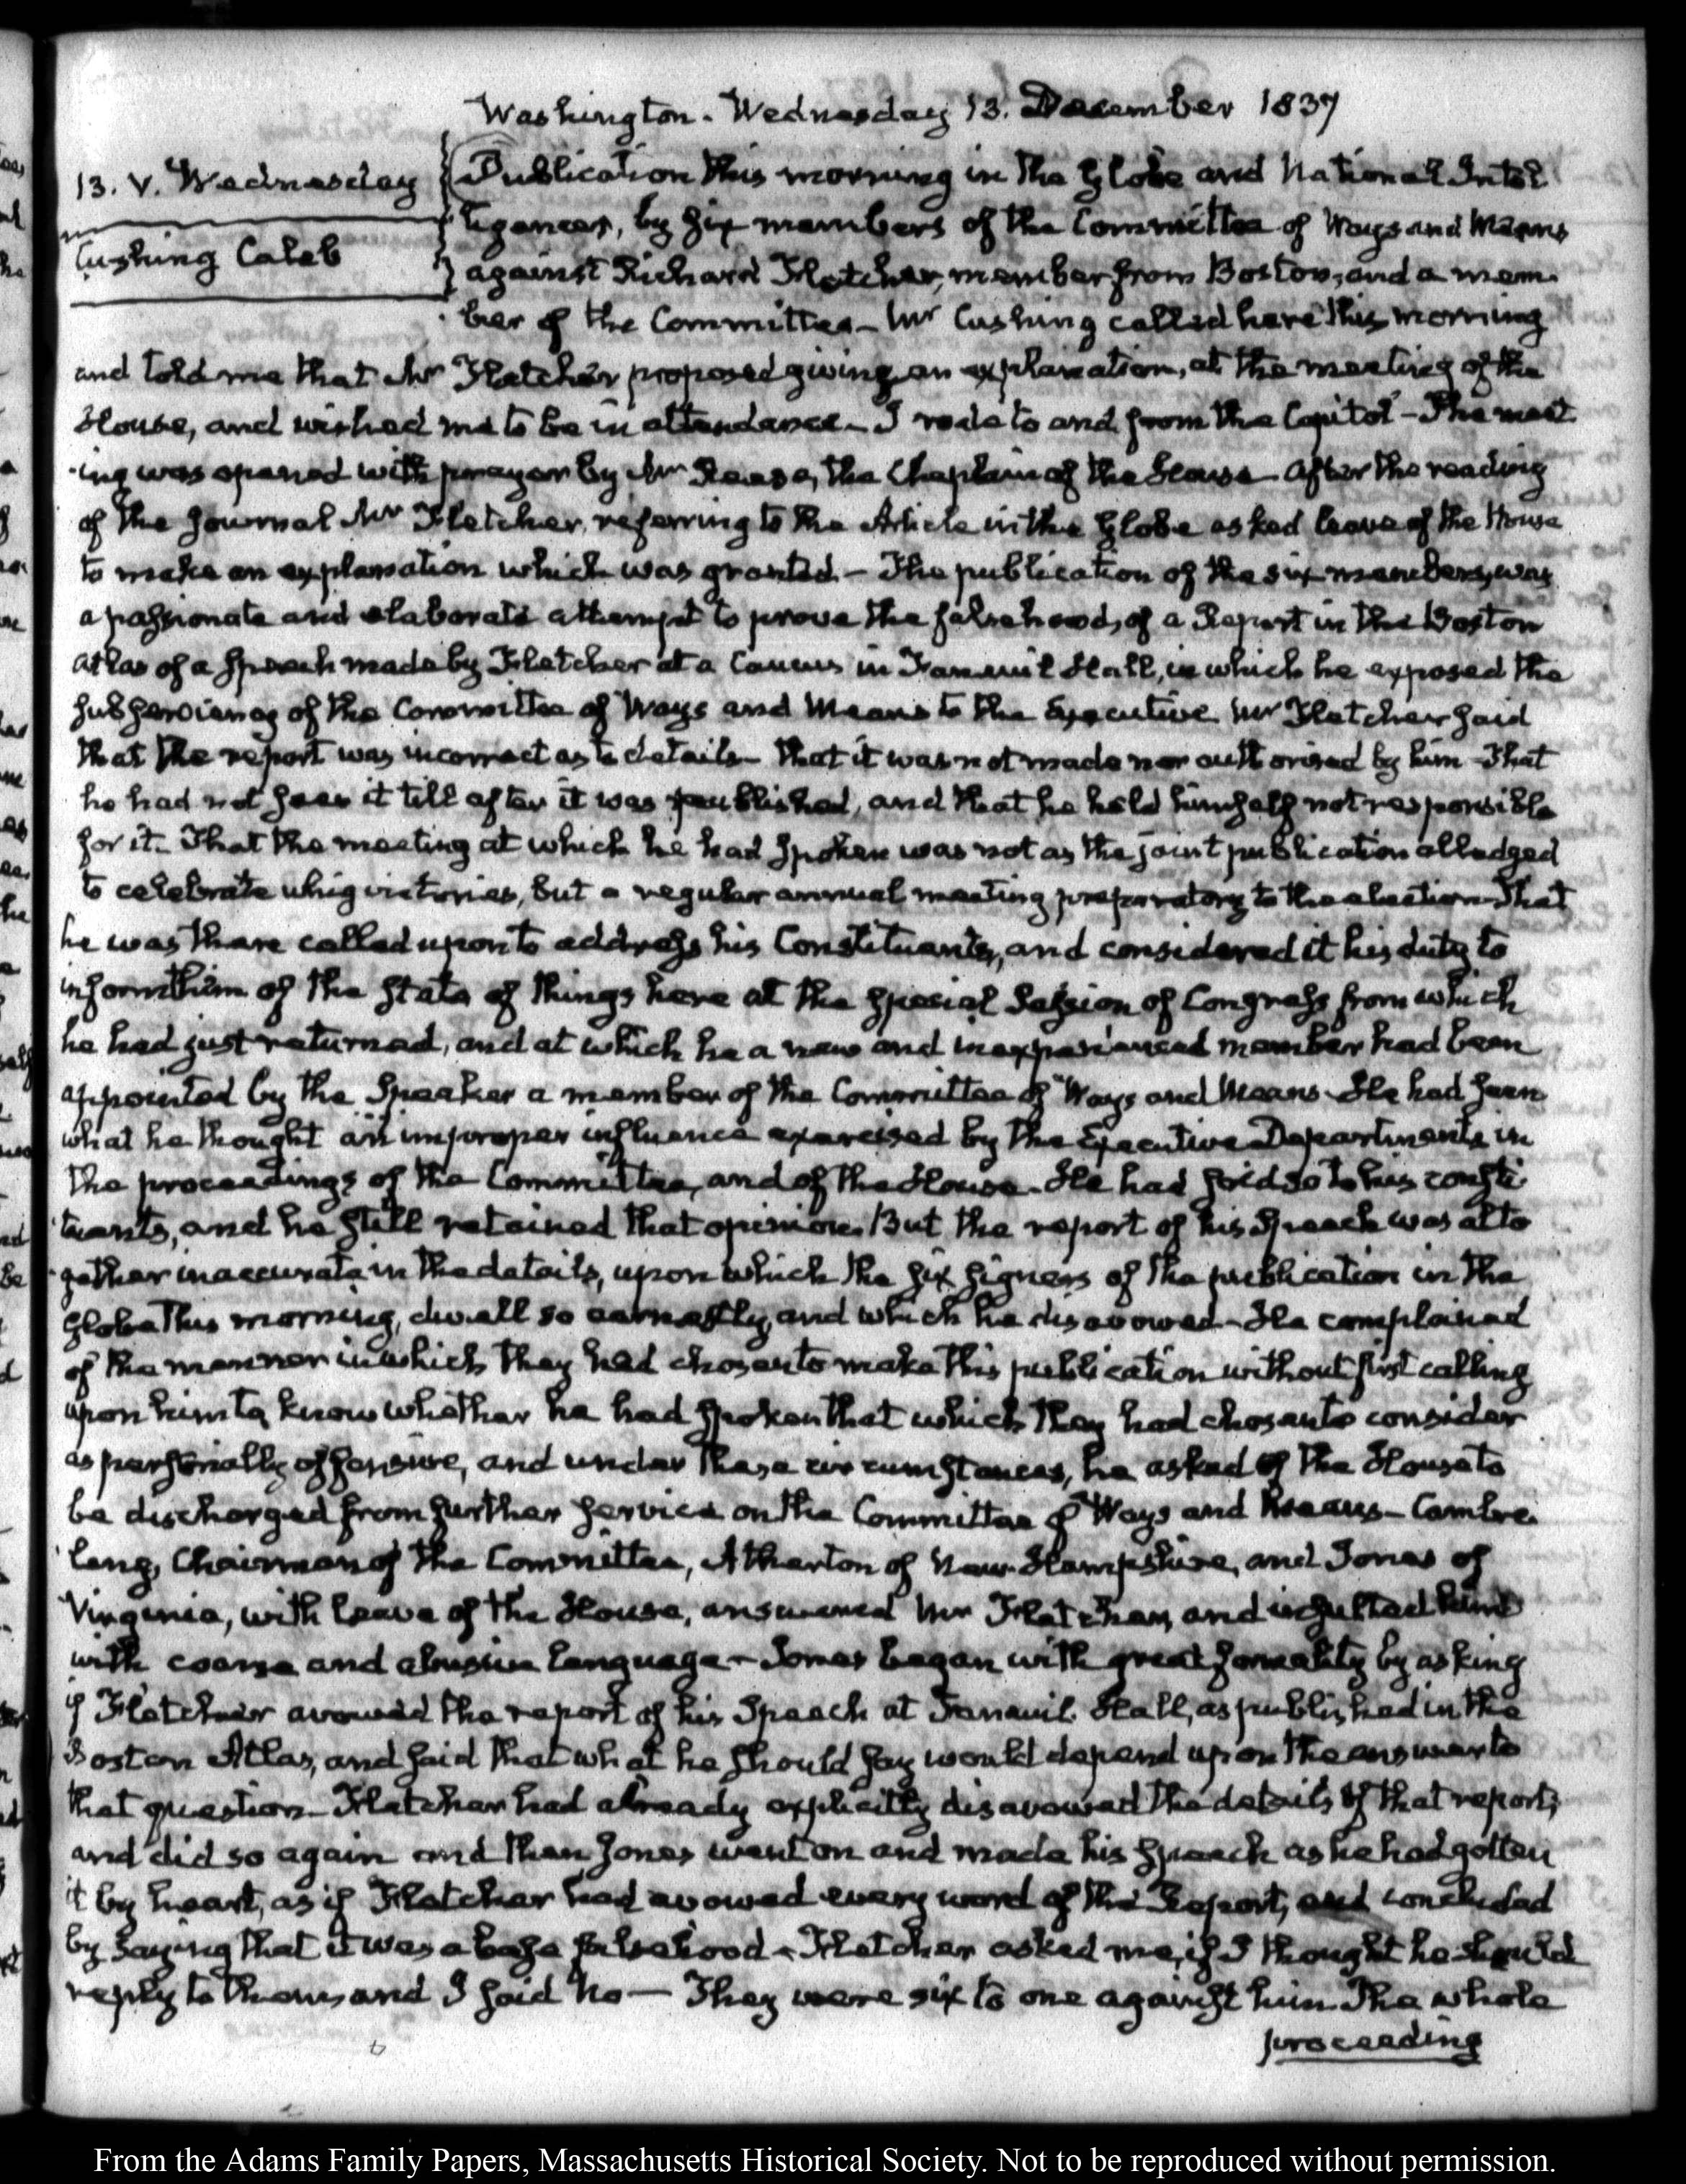 Washington. Wednesday 13. December 1837
13. V. Wednesday
Cushing Caleb
Publication this morning in the Globe and National Intel
ligencer, by six members of the Committee of Ways and Means
against Richard Fletcher, member from Boston, and a mem
ber of the Committee — Mr Cushing called here this morning
and told me that Mr Fletcher proposed giving an explanation, at the meeting of the
House, and wished me to be in attendance — I rode to and from the Capitol — The meet
ing was opened with prayer by Mr Reese, the Chaplain of the House — After the reading
of the Journal Mr Fletcher, referring to the Article in the Globe asked leave of the House
to make an explanation which was granted — The publication of the six members, was
a passionate and elaborate attempt to prove the falsehood, of a Report in the Boston
Atlas of a Speech made by Fletcher at a Caucus in Faneuil Hall, in which he exposed the
subserviency of the Committee of Ways and Means to the Executive Mr Fletcher said
that the report was incorrect as to details — that it was not made nor authorised by him — That
he had not seen it till after it was published, and that he held himself not responsible
for it — That the meeting at which he had spoken was not as the joint publication alledged
to celebrate whig victories, but a regular annual meeting preparatory to the election — That
he was there called upon to address his Constituents, and considered it his duty to
inform them of the state of things here at the special Session of Congress from which
he had just returned, and at which he a new and inexperienced member had been
appointed by the Speaker a member of the Committee of Ways and Means — He had seen
what he thought an improper influence exercised by the Executive Departments in
the proceedings of the Committee, and of the House — He had said so to his consti
tuents, and he still retained that opinion. But the report of his Speech was alto
gether inaccurate in the details, upon which the six signers of the publication in the
Globe this morning, dwell so earnestly, and which he disavowed — He complained
of the manner in which they had chosen to make this publication without first calling
upon him to know whether he had spoken that which they had chosen to consider
as personally offensive, and under these circumstances, he asked of the House to
be discharged from further service on the Committee of Ways and Means — Cambre
leng, Chairman of the Committee, Atherton of New-Hampshire, and Jones of
Virginia, with leave of the House, answered Mr Fletcher, and insulted him
with coarse and abusive language — Jones began with great formality by asking
if Fletcher avowed the report of his Speech at Faneuil Hall, as published in the
Boston Atlas, and said that what he should say would depend upon the answer to
that question — Fletcher had already explicitly disavowed the details of that report,
and did so again and then Jones went on and made his speech as he had gotten
it by heart, as if Fletcher had avowed every word of the Report, and concluded
by saying that it was a base falsehood — Fletcher asked me, if I thought he should
reply to them, and I said No — They were six to one against him The whole
proceeding
From the Adams Family Papers, Massachusetts Historical Society. Not to be reproduced without permission.